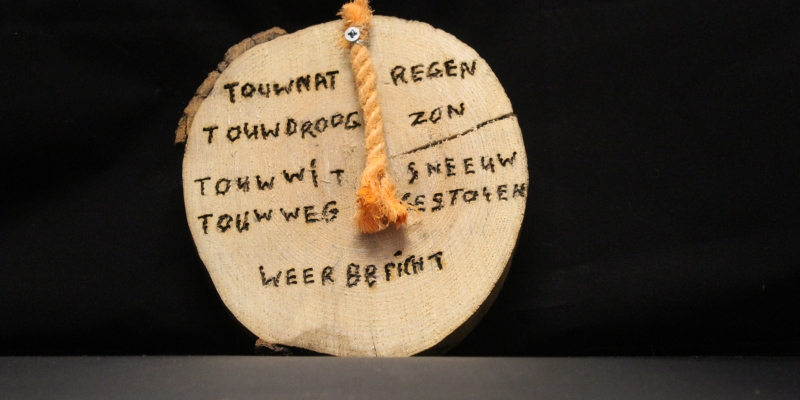 TOUWNAT REGEN
TOUWDROOG ZON
TOUW WIT SNEEUW
TOUW WEG GESTOLEN
WEERBERICHT